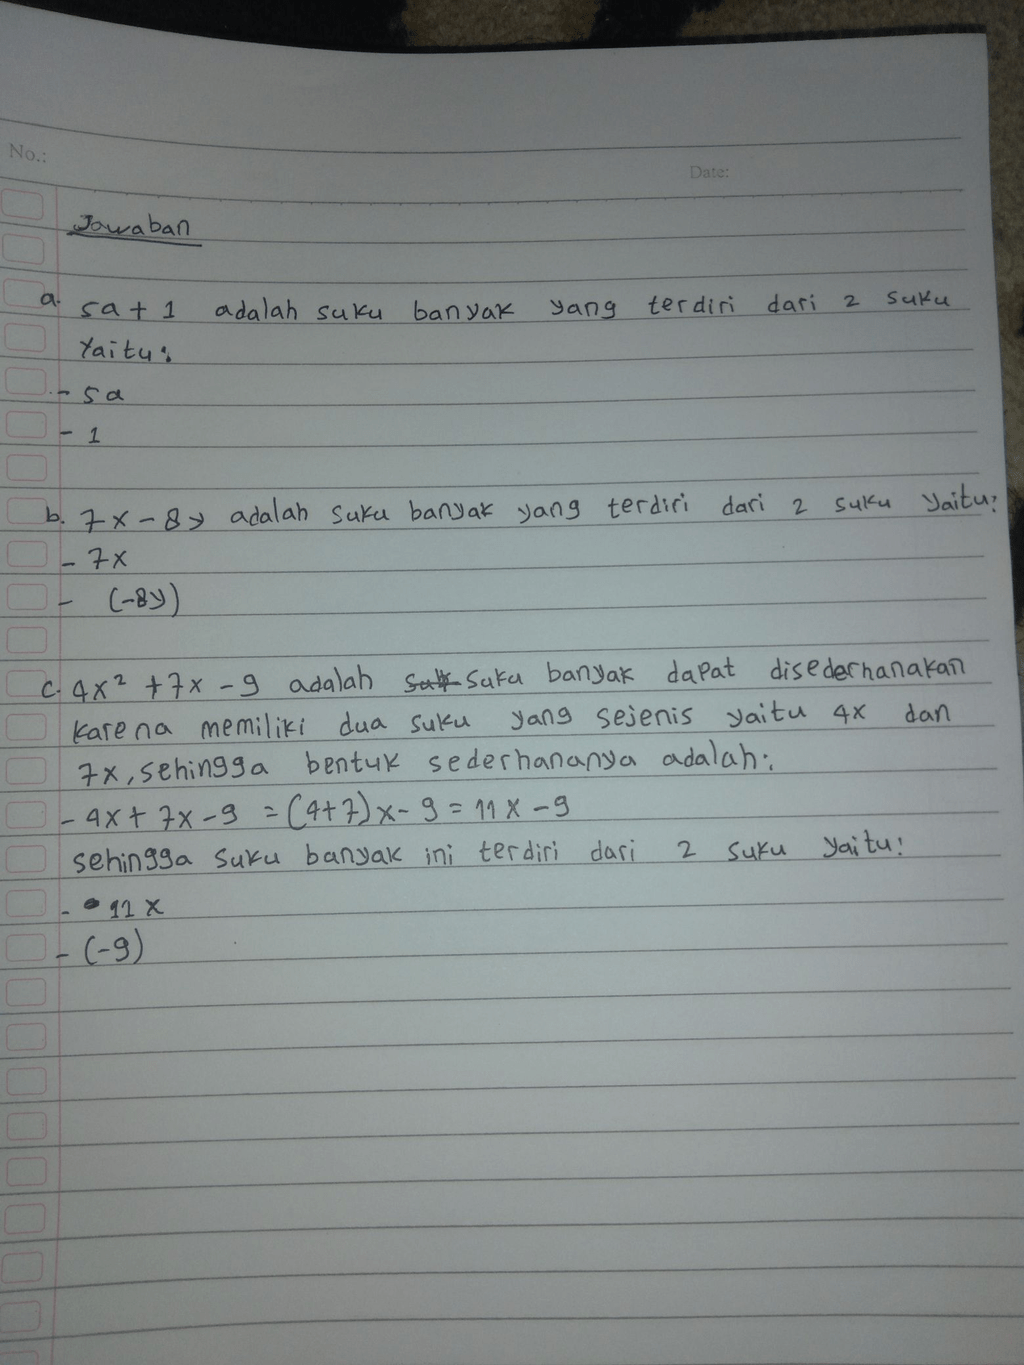 No.:
Date:
Jawaban
a. 5a + 1 adalah suku banyak yang terdiri dari 2 suku
Yaitu:
- 5a
- 1
b. 7x - 8y adalah suku banyak yang terdiri dari 2 suku yaitu:
- 7x
- (-8y)
c. 4x² + 7x - 9 adalah suku banyak dapat disederhanakan
karena memiliki dua suku yang sejenis yaitu 4x dan
7x, sehingga bentuk sederhananya adalah:
- 4x + 7x - 9 = (4+7)x - 9 = 11x - 9
sehingga suku banyak ini terdiri dari 2 suku yaitu:
- 11x
- (-9)